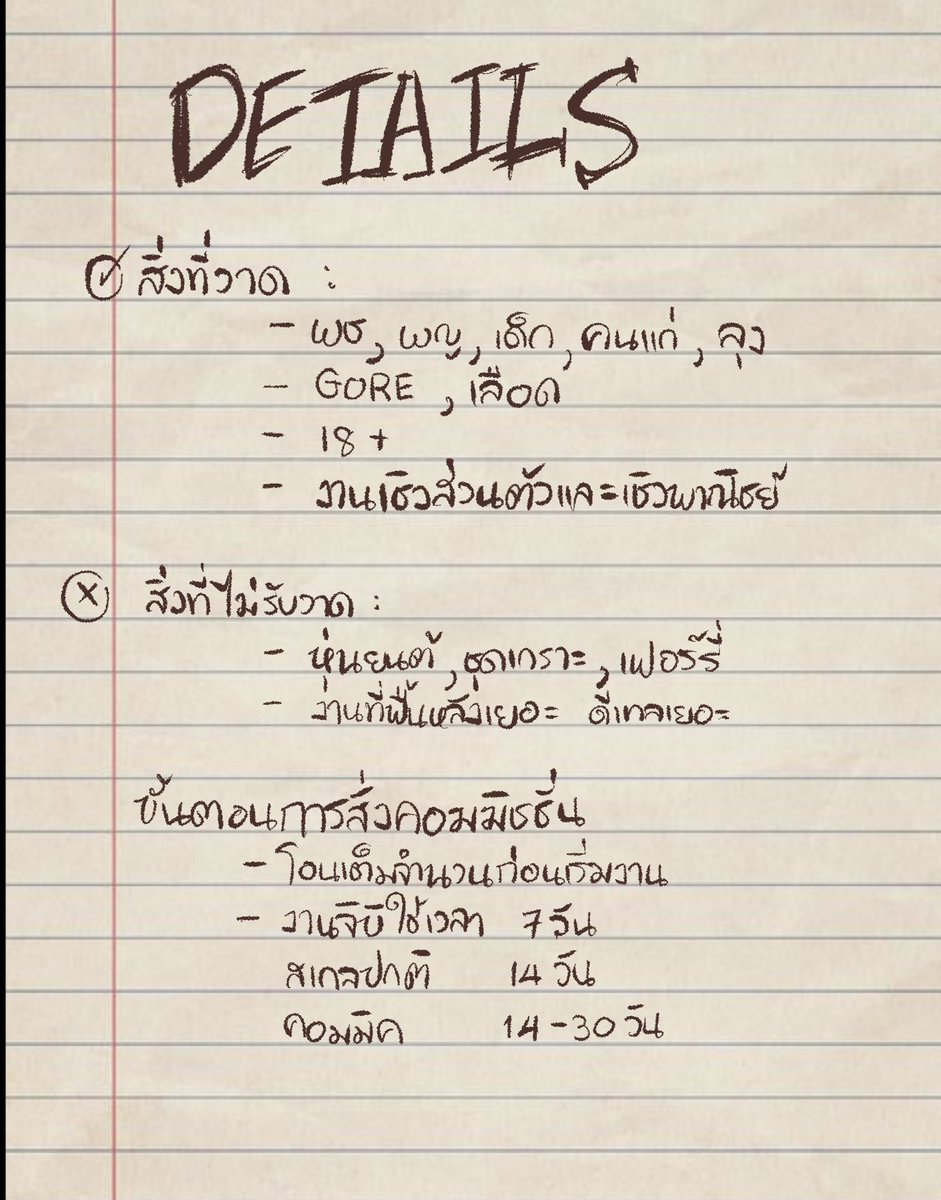 DETAILS
สิ่งที่วาด :
- ผช, ผญ, เด็ก, คนแก่, ลุง
- GORE, เลือด
- 18+
- งานเชิงส่วนตัวและเชิงพาณิชย์
สิ่งที่ไม่รับวาด :
- หุ่นยนต์, ชุดเกราะ, เฟอร์รี่
- งานที่พื้นหลังเยอะ ดีเทลเยอะ
ขั้นตอนการสั่งคอมมิชชั่น
- โอนเต็มจำนวนก่อนเริ่มงาน
- งานจิบิใช้เวลา 7 วัน
สเกลปกติ 14 วัน
คอมมิค 14-30 วัน